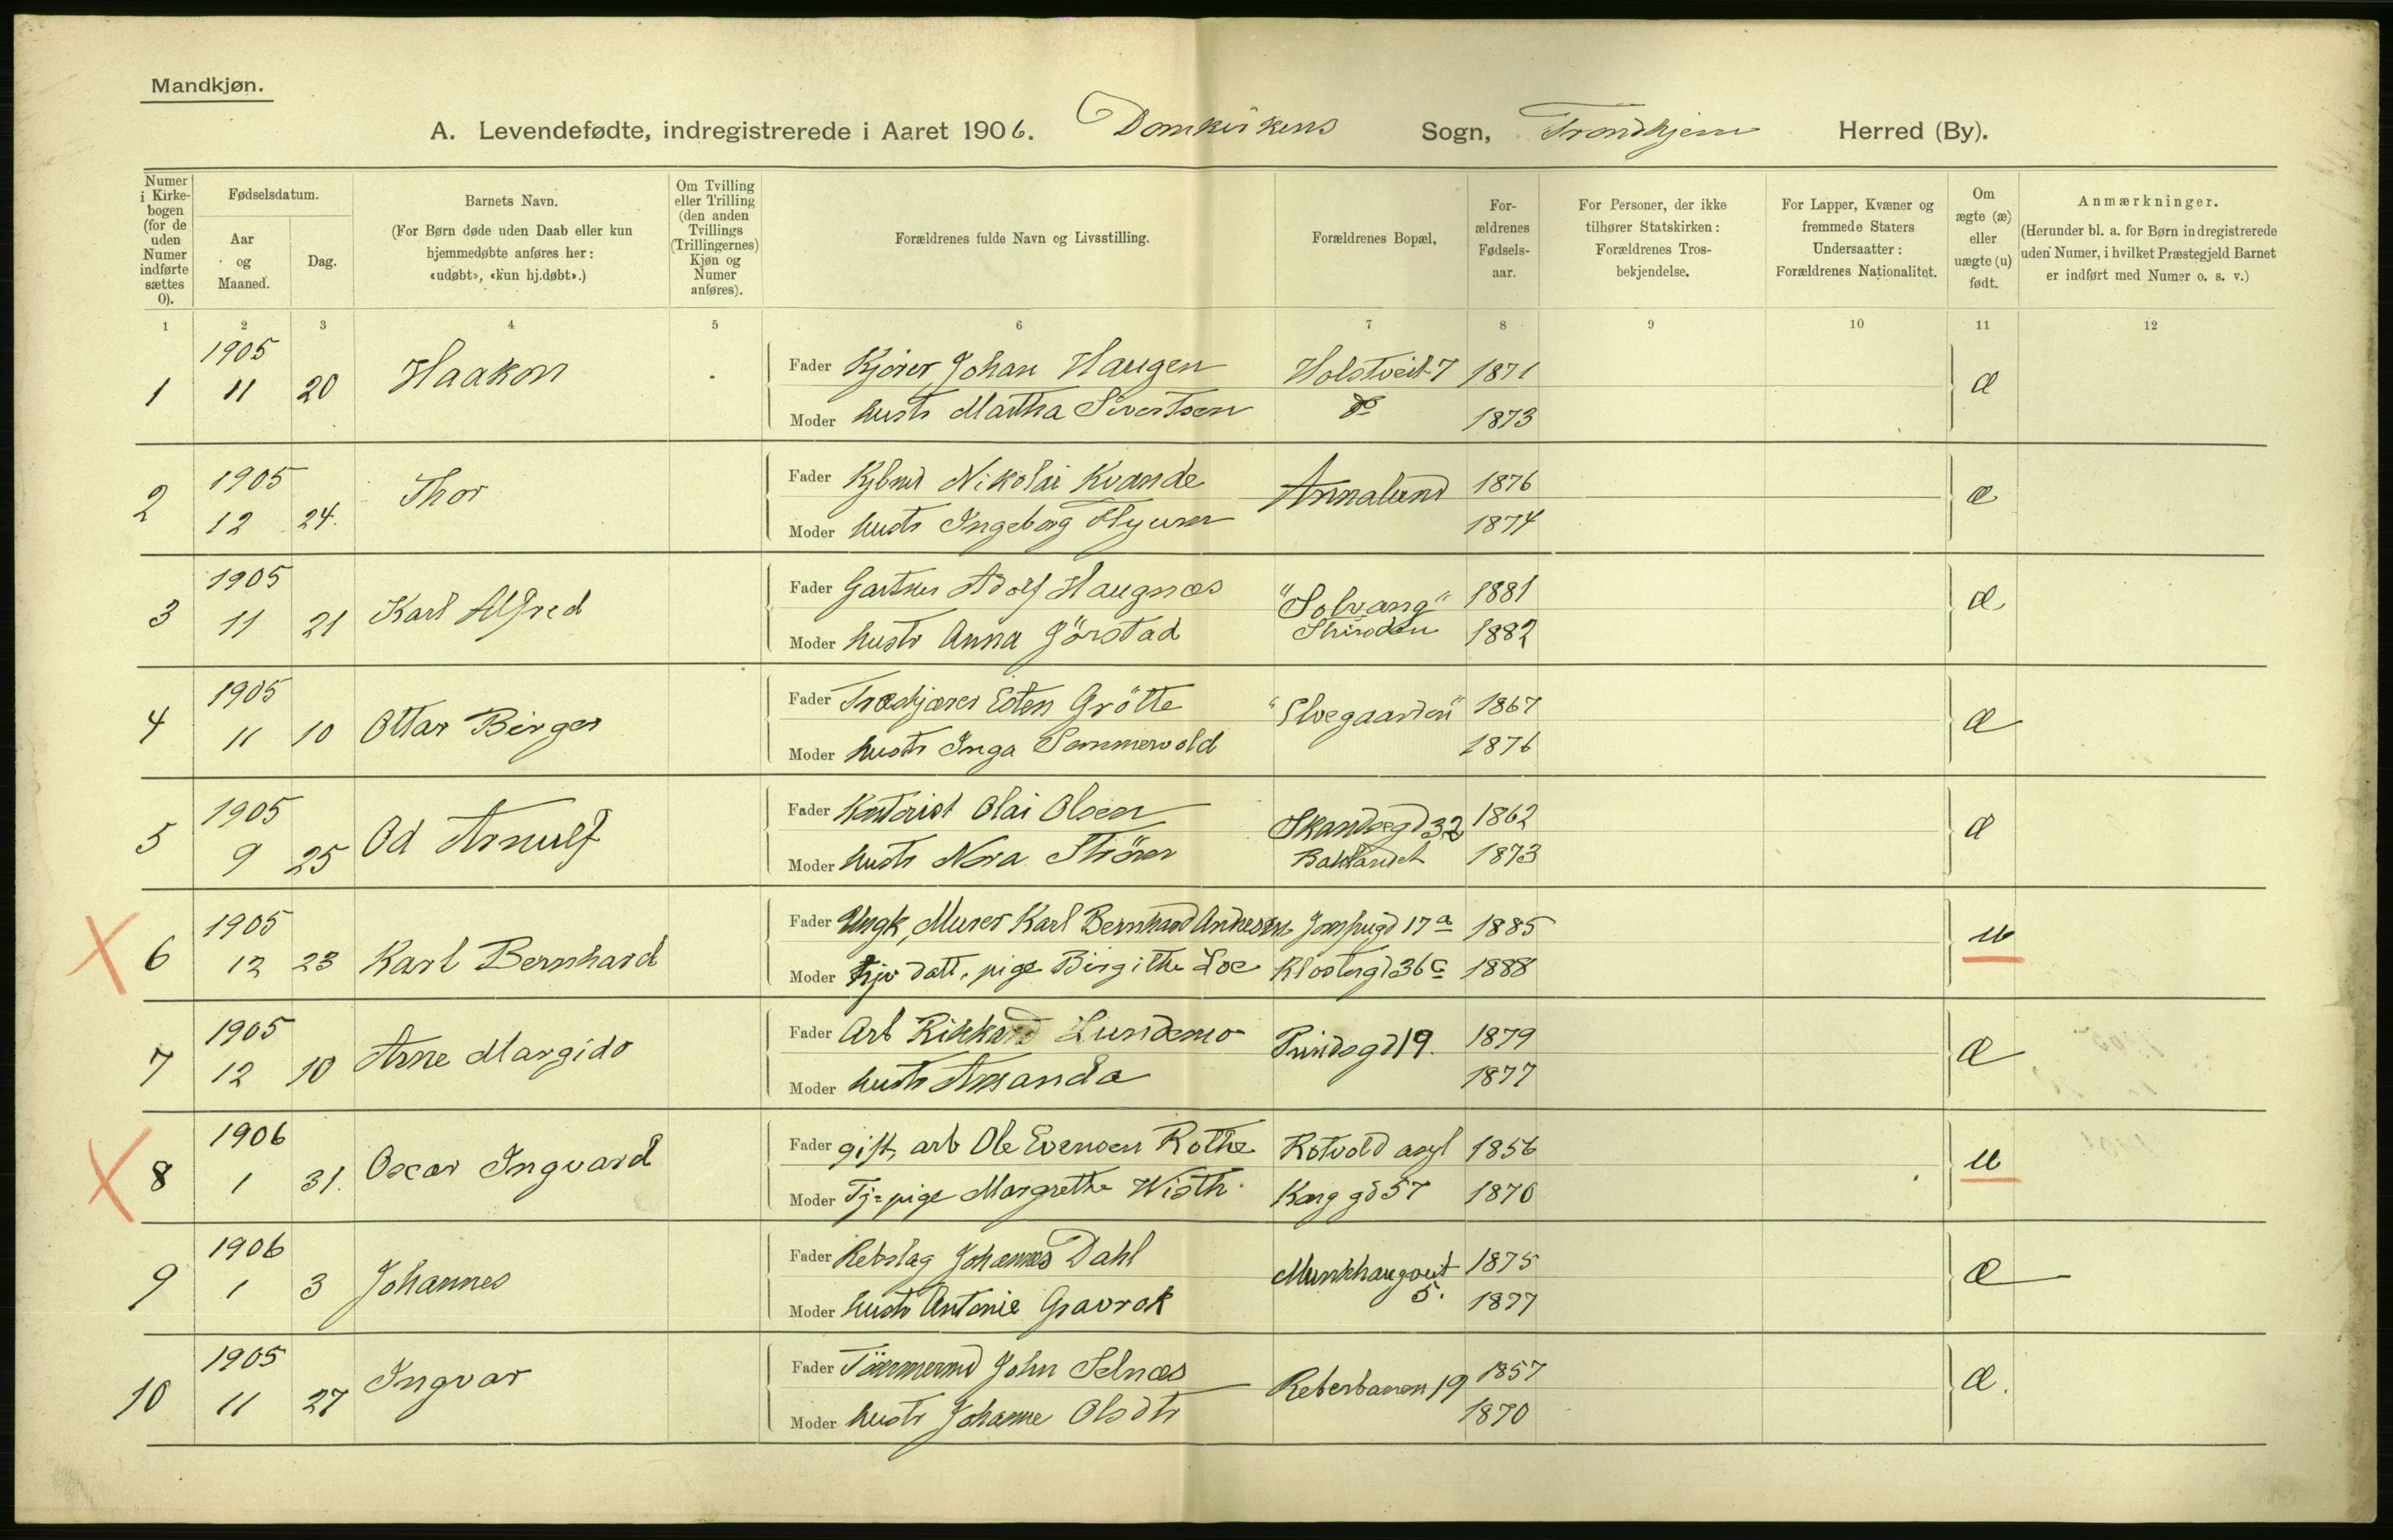 Mandkjøn.
A. Levendefødte, indregistrerede i Aaret 1906. Domkirkens Sogn, Trondhjem Herred (By).
Numer i Kirkebogen (for de uden Numer indførte sættes 0).
Fødselsdatum.
Aar og Maaned.
Dag.
Barnets Navn.
(For Børn døde uden Daab eller kun hjemmedøbte anføres her: «udøbt», «kun hj.døbt».)
Om Tvilling eller Trilling (den anden Tvillings (Trillingernes) Kjøn og Numer anføres).
Forældrenes fulde Navn og Livsstilling.
Forældrenes Bopæl.
Forældrenes Fødselsaar.
For Personer, der ikke tilhører Statskirken: Forældrenes Trosbekjendelse.
For Lapper, Kvæner og fremmede Staters Undersaatter: Forældrenes Nationalitet.
Om ægte (æ) eller uægte (u) født.
Anmærkninger.
(Herunder bl. a. for Børn indregistrerede uden Numer, i hvilket Præstegjeld Barnet er indført med Numer o. s. v.)
1 2 3 4 5 6 7 8 9 10 11 12
1 1905 11 20 Haakon
Fader Kjører Johan Haugen Holstveit 7 1871 æ
Moder hustr Martha Sivertsen do 1873
2 1905 12 24. Thor
Fader Kjbmd Nikolai Kvande Annalund 1876 æ
Moder hustr Ingeborg 1874
3 1905 11 21 Karl Alfred
Fader Gartner Adolf Haugnæs "Solvang" 1881 æ
Moder hustr Anna Jörstad Strinden 1882
4 1905 11 10 Ottar Birger
Fader Esten Grötte 1867 æ
Moder hustr Inga Sommervold 1876
5 1905 9 25 Od Arnulf
Fader Kontorist Olai Olsen 32 1862 æ
Moder hustr Nora Baklandet 1873
6 1905 12 23 Karl Bernhard
Fader Ungk, Murer Karl Bernhard Andresen 17a 1885 u
Moder datt. pige Birgithe Loe Klostergd 36c 1888
7 1905 12 10 Arne Margido
Fader Arb Rikkard Lundemo Prindsgd 19. 1879 æ
Moder hustr Amanda 1877
8 1906 1 31. Oscar Ingvard
Fader gift, arb Ole Evensen Rothe Rotvold asyl 1856 u
Moder Tj-pige Margrethe Wisth Konggd 57 1870
9 1906 1 3 Johannes
Fader Rebslag Johannes Dahl Munkhaugveit 5. 1875 æ
Moder hustr Antonie Gravrok 1877
10 1905 11 27 Ingvar
Fader Tömmermd John Selnæs Reberbanen 19 1857 æ.
Moder hustr Johanne Olsdtr 1870